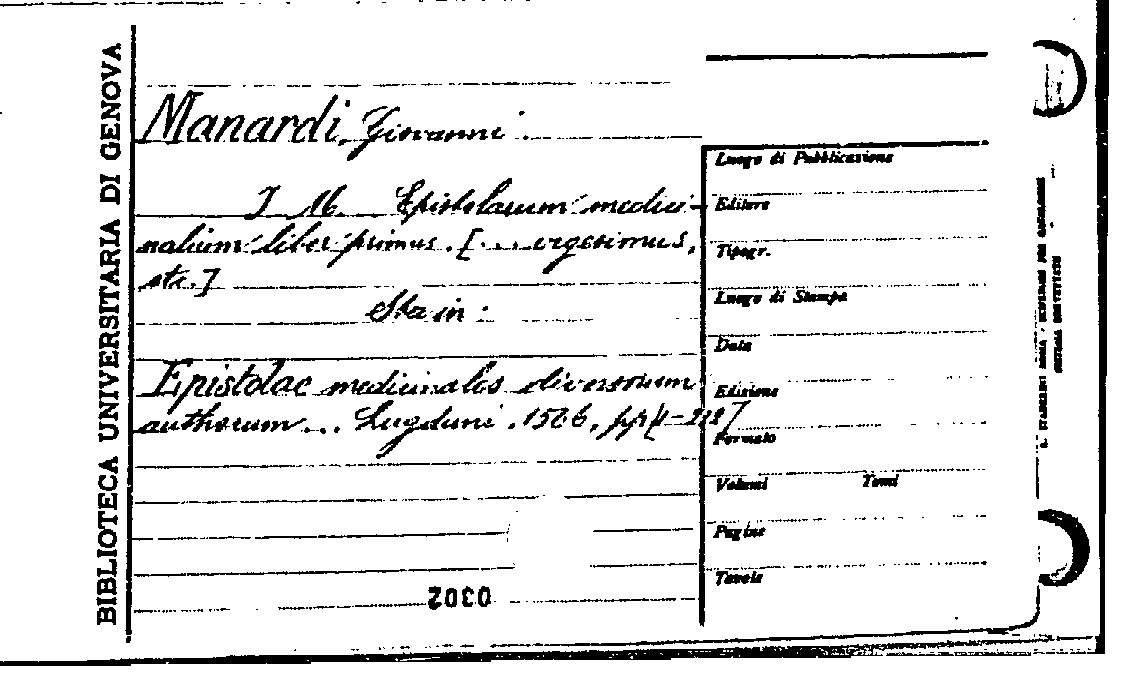 BIBLIOTECA UNIVERSITARIA DI GENOVA
Manardi, Giovanni.
J M. Epistolarum medici-
nalium liber primus. [... vigesimus,
etc.]
Sta in:
Epistolae medicinales diversorum
authorum... Lugduni, 1556, pp
Luogo di Pubblicazione
Editore
Tipogr.
Luogo di Stampa
Data
Edizione
Formato
Volumi Tomi
Pagine
Tavole
0302